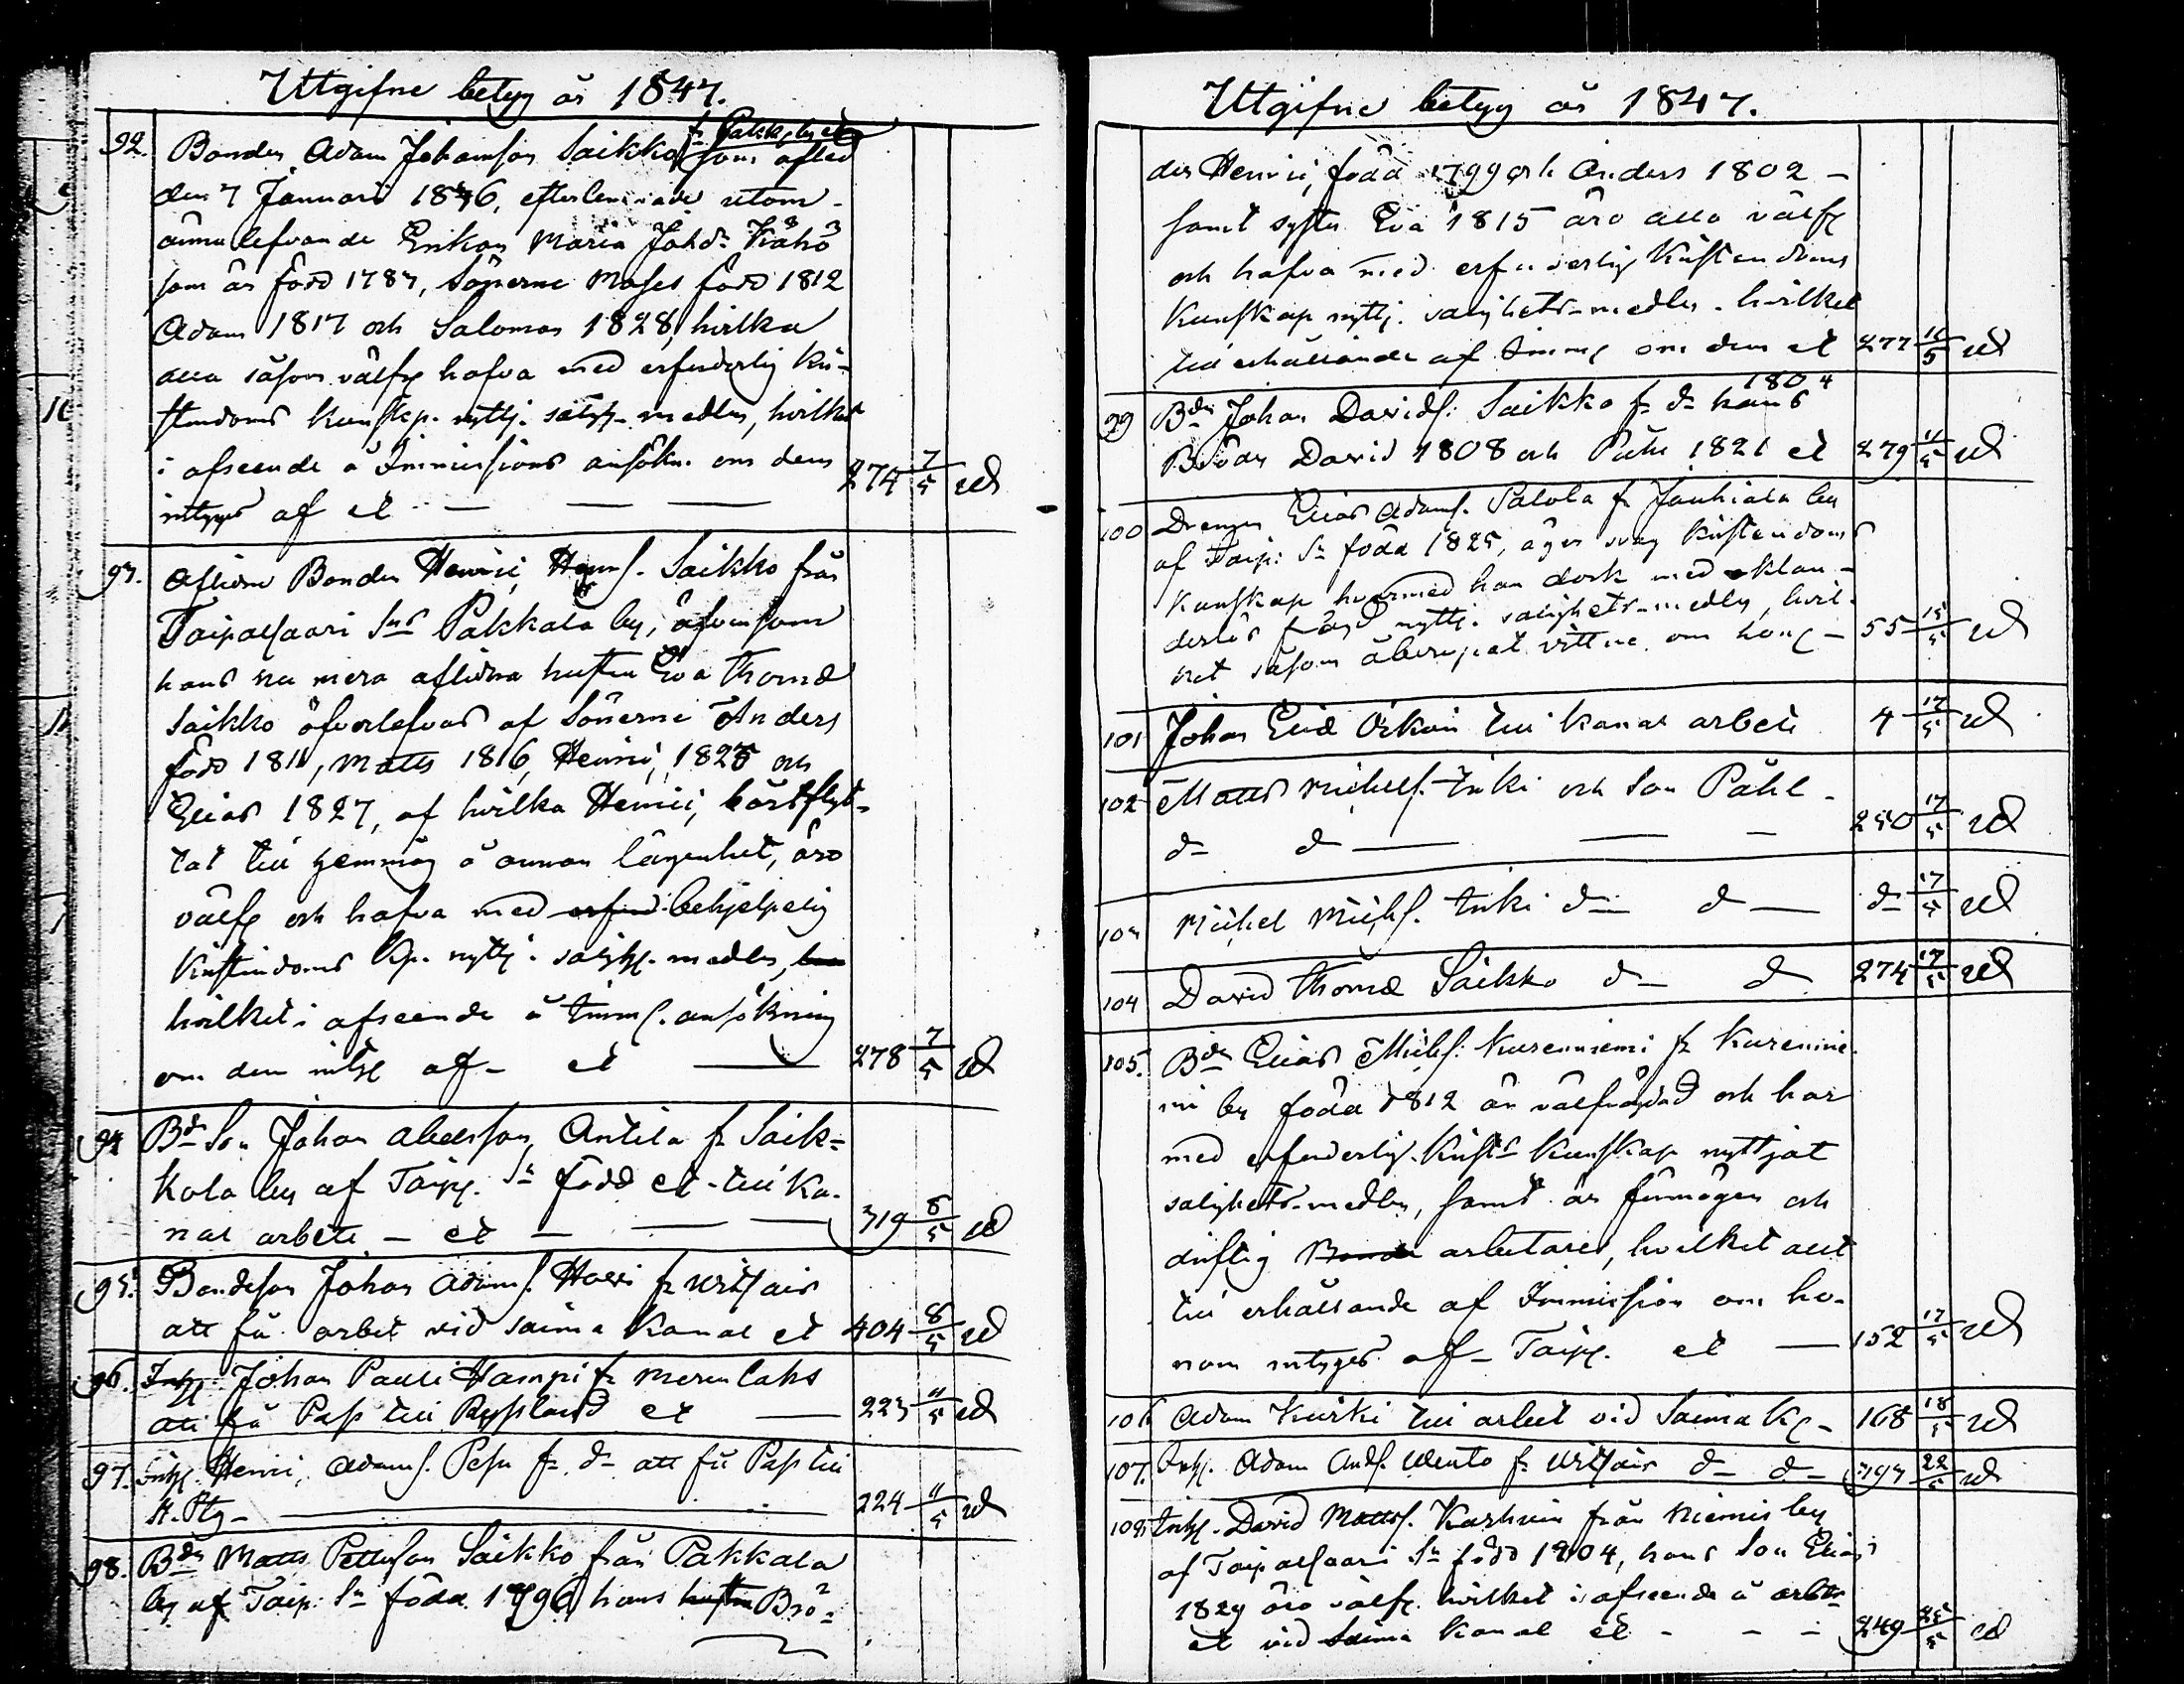 Utgifne betyg år 1847.
92. Bonden Adam Johansson Saikko fr Pakkala by som afled
den 7 Januari 1846, efterlemnade utom
ännu lefvande Enkan Maria Johdr Kähö
som är född 1787, Sönerne Moses född 1812
Adam 1817 och Salomon 1828, hvilka
alla såsom välfr hafva med erfoderlig kri-
stendoms kunskp. nyttj. saligh-medlen, hvilket
i afseende å Immissions ansökn. om dem
intygas af et 274 7/5 ud
93. Aflidne Bonden Henric Henrs. Saikko från
Taipalsaari Sns Pakkala by, äfvensom
hans nu mera aflidna hustru Eva Thomæ
Saikko öfverlefvas af Sönerne Anders
född 1811, Matts 1816, Henric 1825 och
Elias 1827, af hvilka Henric, bortflyt-
tat till hemmag å annan lägenhet, äro
välfr och hafva med erfod behjelpelig
Kristendoms kp. nyttj. saligh. medlen,
hvilket i afseende å Imms. ansökning
om dem intyg af et 278 7/5 ud
94 Bd Son Johan Abelsson Antila fr Saik-
kola by af Taip. Sn född et till Ka-
nal arbete et 319 8/5 ud
95. Bondeson Johan Adams. Havi fr Vitsais
att få arbet vid Saima Kanal et 404 8/5 ud
96. Inh Johan Pauli Hampi fr Merenlaks
att få Pass till Ryssland et 223 11/5 ud
97. Inh. Henric Adams. Pesu fr d att få Pass till
St. Ptg 224 11/5 ud
98. Bdn Matts Pettersson Saikko från Pakkala
by af Taip. Sn född 1796 hans hustru Brö-
Utgifne betyg år 1847.
der Henric, född 1799 och Anders 1802
samt syster Eva 1815 äro alla välfr
och hafva med erfoderlig Kristendoms
Kunskap nyttj. salighets-medlen. hvilket
till erhållande af Imms om dem et 277 11/5 ud
99 Bdn Johan Davids. Saikko fr d 1804 hans
Bröder David 1808 och Påhl 1821 et 279 11/5 ud
100 Drengen Elias Adams. Palola fr Jauhiala by
af Taip. Sn född 1825, äger svag Kristendoms
Kunskap hvarmed han dock med klan-
derlös fräjd nyttj. salighets-medlen, hvil-
ket såsom åberopat vittne om hong 55 15/5 ud
101 Johan Eliæ Orkoin till kanal arbete 4 17/5 ud
102 Matts Michels. Inki och Son Påhl
d d 250 17/5 ud
103 Michel Michs. Inki d d d 17/5 ud
104 David Thomæ Saikko d d 274 17/5 ud
105. Bdn Elias Michs. Kurenniemi fr Kurennie-
mi by född 1812 är välfräjdad och har
med erfoderlig. Krist. Kunskap nyttjat
salighets-medlen, samt är förmögen och
driftig Bonde arbetare, hvilket allt
till erhållande af Immission om ho-
nom intygas af Taip. et 152 17/5 ud
106 Adam Kurki till arbet vid Saima Kl 168 18/5 ud
107. Inh. Adam Ands. Wento fr Vitsais d d 393 22/5 ud
108 Inh. David Matts. Karhuin från Niemis by
af Taipalsaari Sn född 1804, hans Son Elias
1829 äro välfr. hvilket i afseende å arbt-
et vid Saima Kanal et 249 25/5 ud